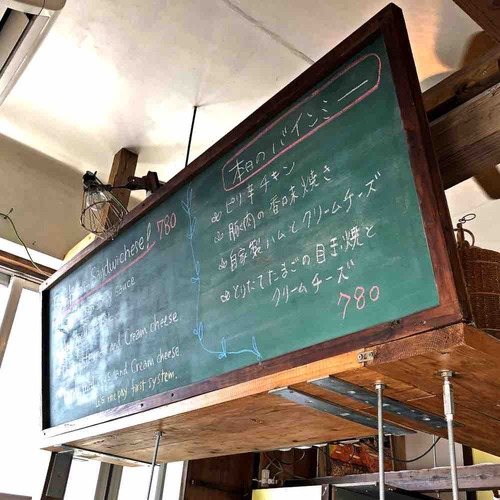 Sandwiches! 780
sauce
and Cream cheese
and Cream cheese
is the pay first system.
本日のバインミー
ピリ辛チキン
豚肉の香味焼き
自家製ハムとクリームチーズ
とりたてたまごの目玉焼と
クリームチーズ
780